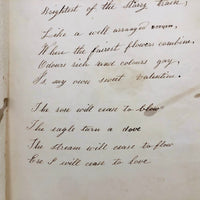 Brightest of the Starry train,
Like a well arranged
Where the fairest flowers combine,
Odours rich and colours gay,
Is my own sweet Valentine.
The rose will cease to blow
The eagle turn a dove
The stream will cease to flow
Ere I will cease to love